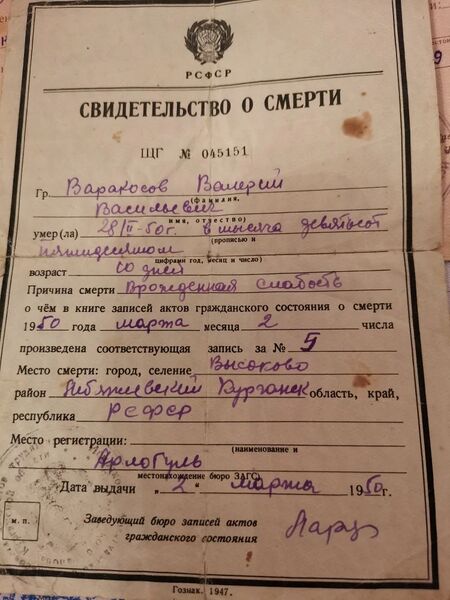 РСФСР
СВИДЕТЕЛЬСТВО О СМЕРТИ
ЩГ № 045151
Гр. Варакосов Валерий
(фамилия,
Васильевич
имя, отчество)
умер(ла) 28/II-50г. в тысяча девятьсот
(прописью и
пятидесятом
цифрами год, месяц и число)
возраст 10 дней
Причина смерти Врожденная слабость
о чём в книге записей актов гражданского состояния о смерти
1950 года марта месяца 2 числа
произведена соответствующая запись за № 5
Место смерти: город, селение Высоково
район Лебяжевский Курганск область, край,
республика РСФСР
Место регистрации:
(наименование и
Арлагуль
местонахождение бюро ЗАГС)
Дата выдачи „2" марта 1950г.
М. П.
Заведующий бюро записей актов
гражданского состояния
Гознак. 1947.